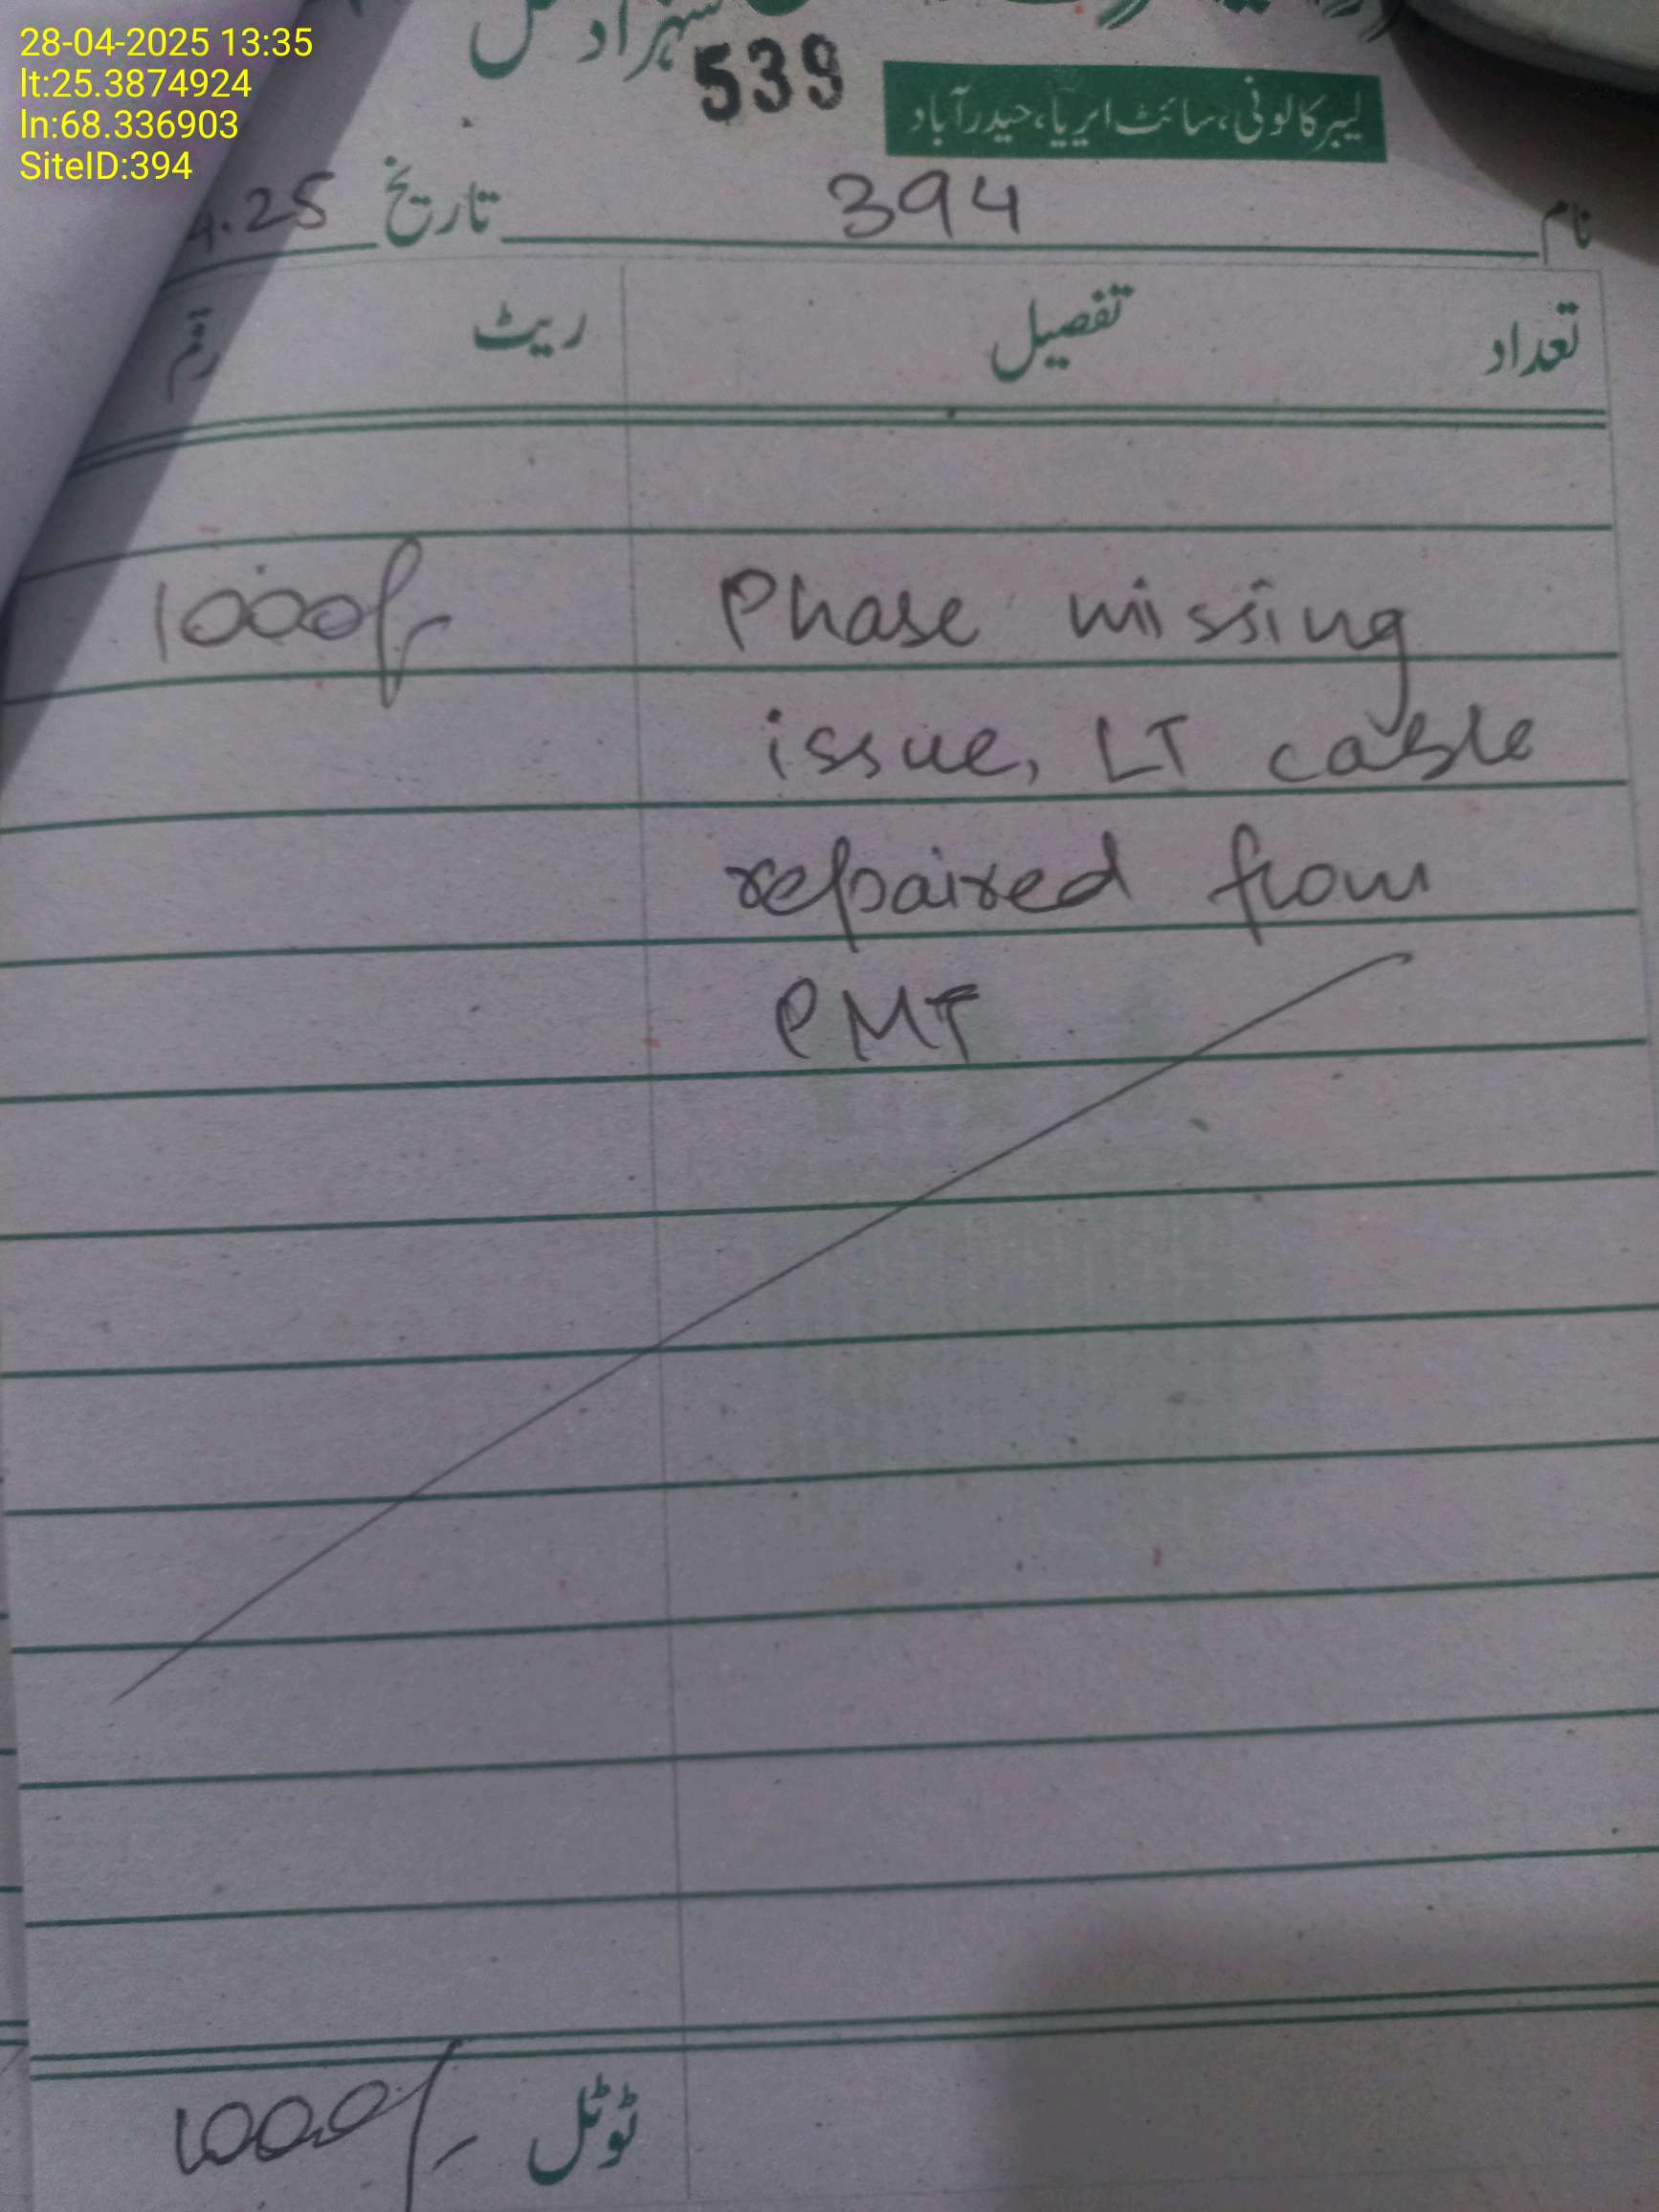 28-04-2025 13:35
lt:25.3874924
ln:68.336903
SiteID:394
539
لیبر کالونی، سائٹ ایریا، حیدرآباد
نام 394 تاریخ 4.25
تعداد تفصیل ریٹ رقم
Phase missing 1000/-
issue, LT cable
repaired from
PMT
ٹوٹل 1000/-